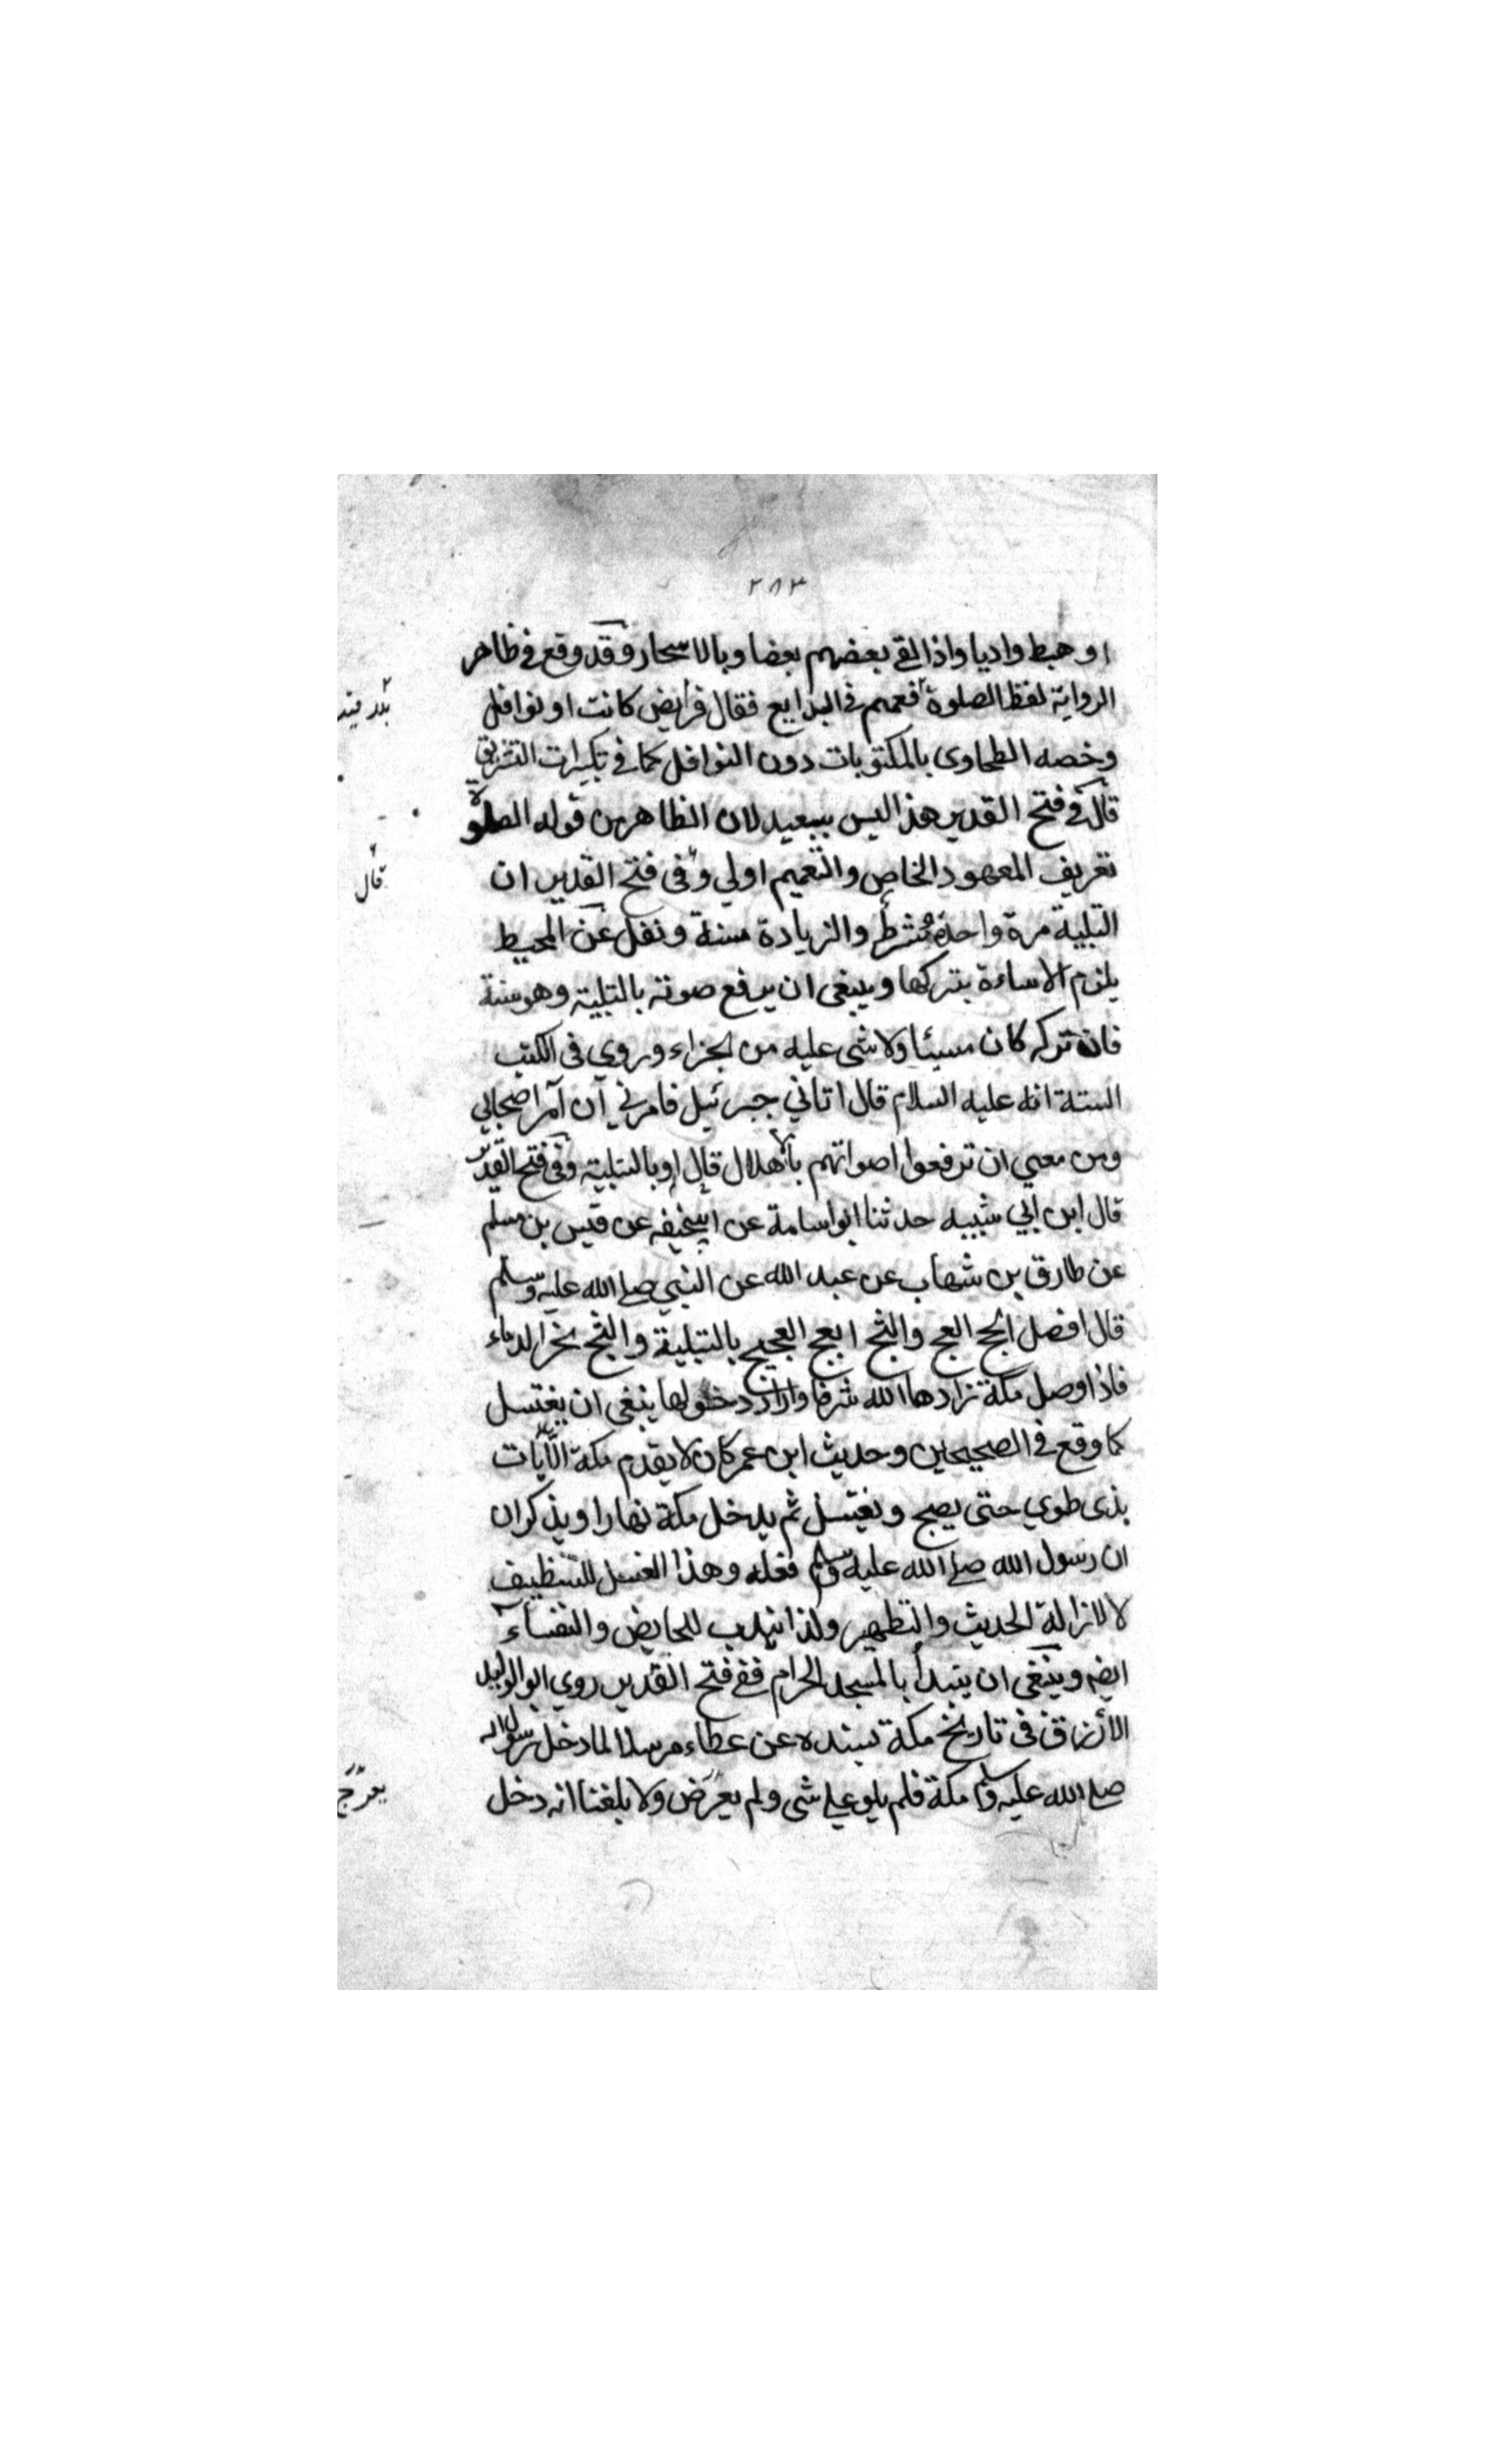 ٢٨٣
او هبط واديا واذا لقي بعضهم بعضا وبالاسحار وقد وقع في ظاهر
الرواية لفظ الصلوة فعمم في البدايع فقال فرايض كانت او نوافل
وخصه الطحاوى بالمكتوبات دون النوافل كما في تكبيرات التشريق
قال في فتح القدير هذا ليس ببعيد لان الظاهر من قوله الصلوة
تعريف المعهود الخاص والتعميم اولي وفى فتح القدير ان
قال
التلبية مرة واحدة شرط والزيادة سنة ونقل عن المحيط
يلزم الاساءة بتركها وينبغى ان يرفع صوته بالتلبية وهو سنة
فان تركه كان مسيئا ولا شى عليه من الجزاء وروي فى الكتب
الستة انه عليه السلام قال اتاني جبرئيل فامرني ان آمر اصحابي
ومن معي ان ترفعوا اصواتهم بالاهلال قال او بالتلبية وفى فتح القدير
قال ابن ابي شيبه حدثنا ابو اسامة عن ابيحنيفه عن قيس بن مسلم
عن طارق بن شهاب عن عبد الله عن النبي صلے الله عليه وسلم
قال افضل الحج العج والثج العج العجيج بالتلبية والثج نحر الدماء
فاذا وصل مكة زادها الله شرفا واراد دخولها ينبغى ان يغتسل
كما وقع في الصحيحين وحديث ابن عمر كان لا يقدم مكة الا بات
بذى طوي حتى يصبح ويغتسل ثم يدخل مكة نهارا ويذكر ان
ان رسول الله صلے الله عليه وسلم فعله وهذا الغسل للتنظيف
لا لازالة الحديث والتطهير ولذا يندب للحايض والنفسآء
ايضه وينبغى ان يبدأ بالمسجد الحرام ففے فتح القدير روي ابو الوليد
الأزرقى فى تاريخ مكة بسنده عن عطاء مرسلا لما دخل رسول الله
صلے الله عليه وسلم مكة فلم يلو علے شى ولم يعرض ولا بلغنا انه دخل
يعرج